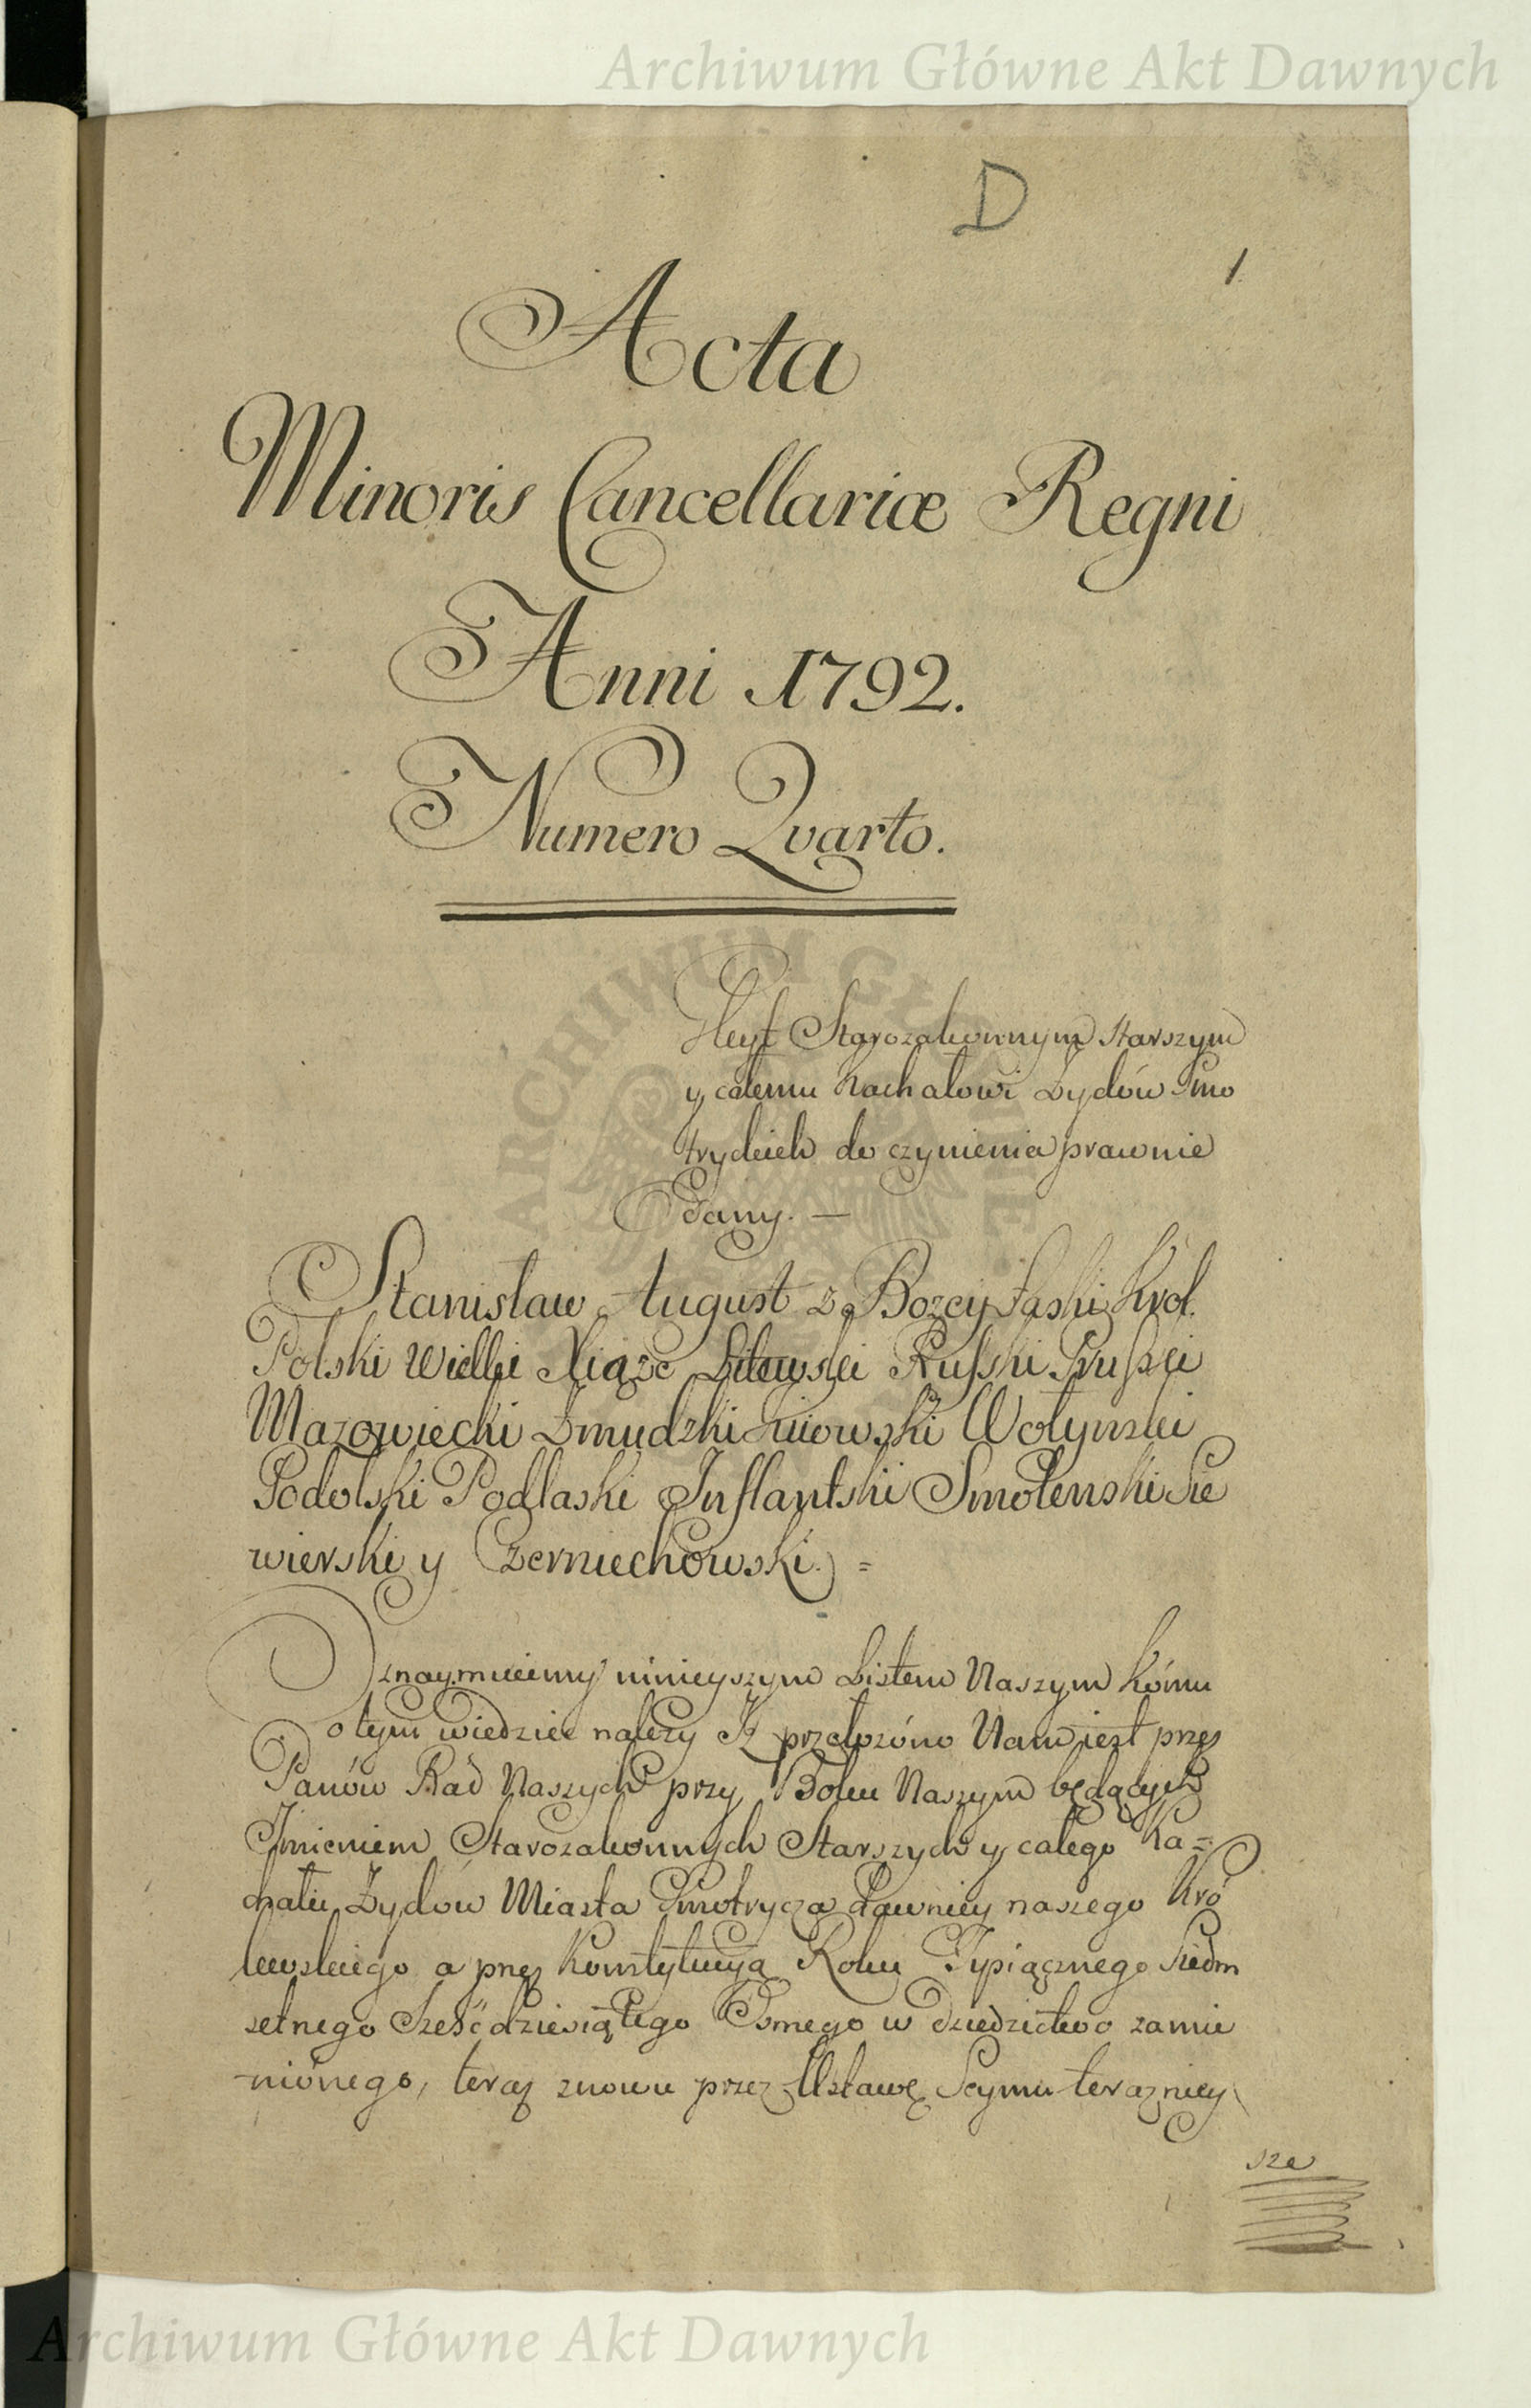 Archiwum Główne Akt Dawnych
D
1.
Acta
Minoris Cancellariæ Regni
Anni 1792.
Numero Qvarto.
Gleyt Starozakonnym Starszym
y całemu Kachałowi Żydów Smo
tryckich do czynienia prawnie
Dany. —
Stanisław August z Bożey Łaski Król.
Polski Wielki Xiąże Litewski Russki Pruski
Mazowiecki Żmudzki Kiiowski Wołynski
Podolski Podlaski Inflantski Smolenski Sie
wierski y Czerniechowski. =
Oznaymuiemy ninieyszym Listem Naszym Kómu
o tym wiedziec nalezy Iż przełozóno Nam iest przez
Panów Rad Naszych przy Boku Naszym będących
Imieniem Starozakonnych Starszych y całego Ka=
chału Żydów Miasta Smotrycza dawniey naszego Kró
lewskiego a przez Konstytucyą Roku Tysiącznego Siedm
setnego Sześćdziesiątego Osmego w dziedzictwo zamie
nionego, teraz znowu przez Ustawę Seymu terazniey
sze
Archiwum Główne Akt Dawnych